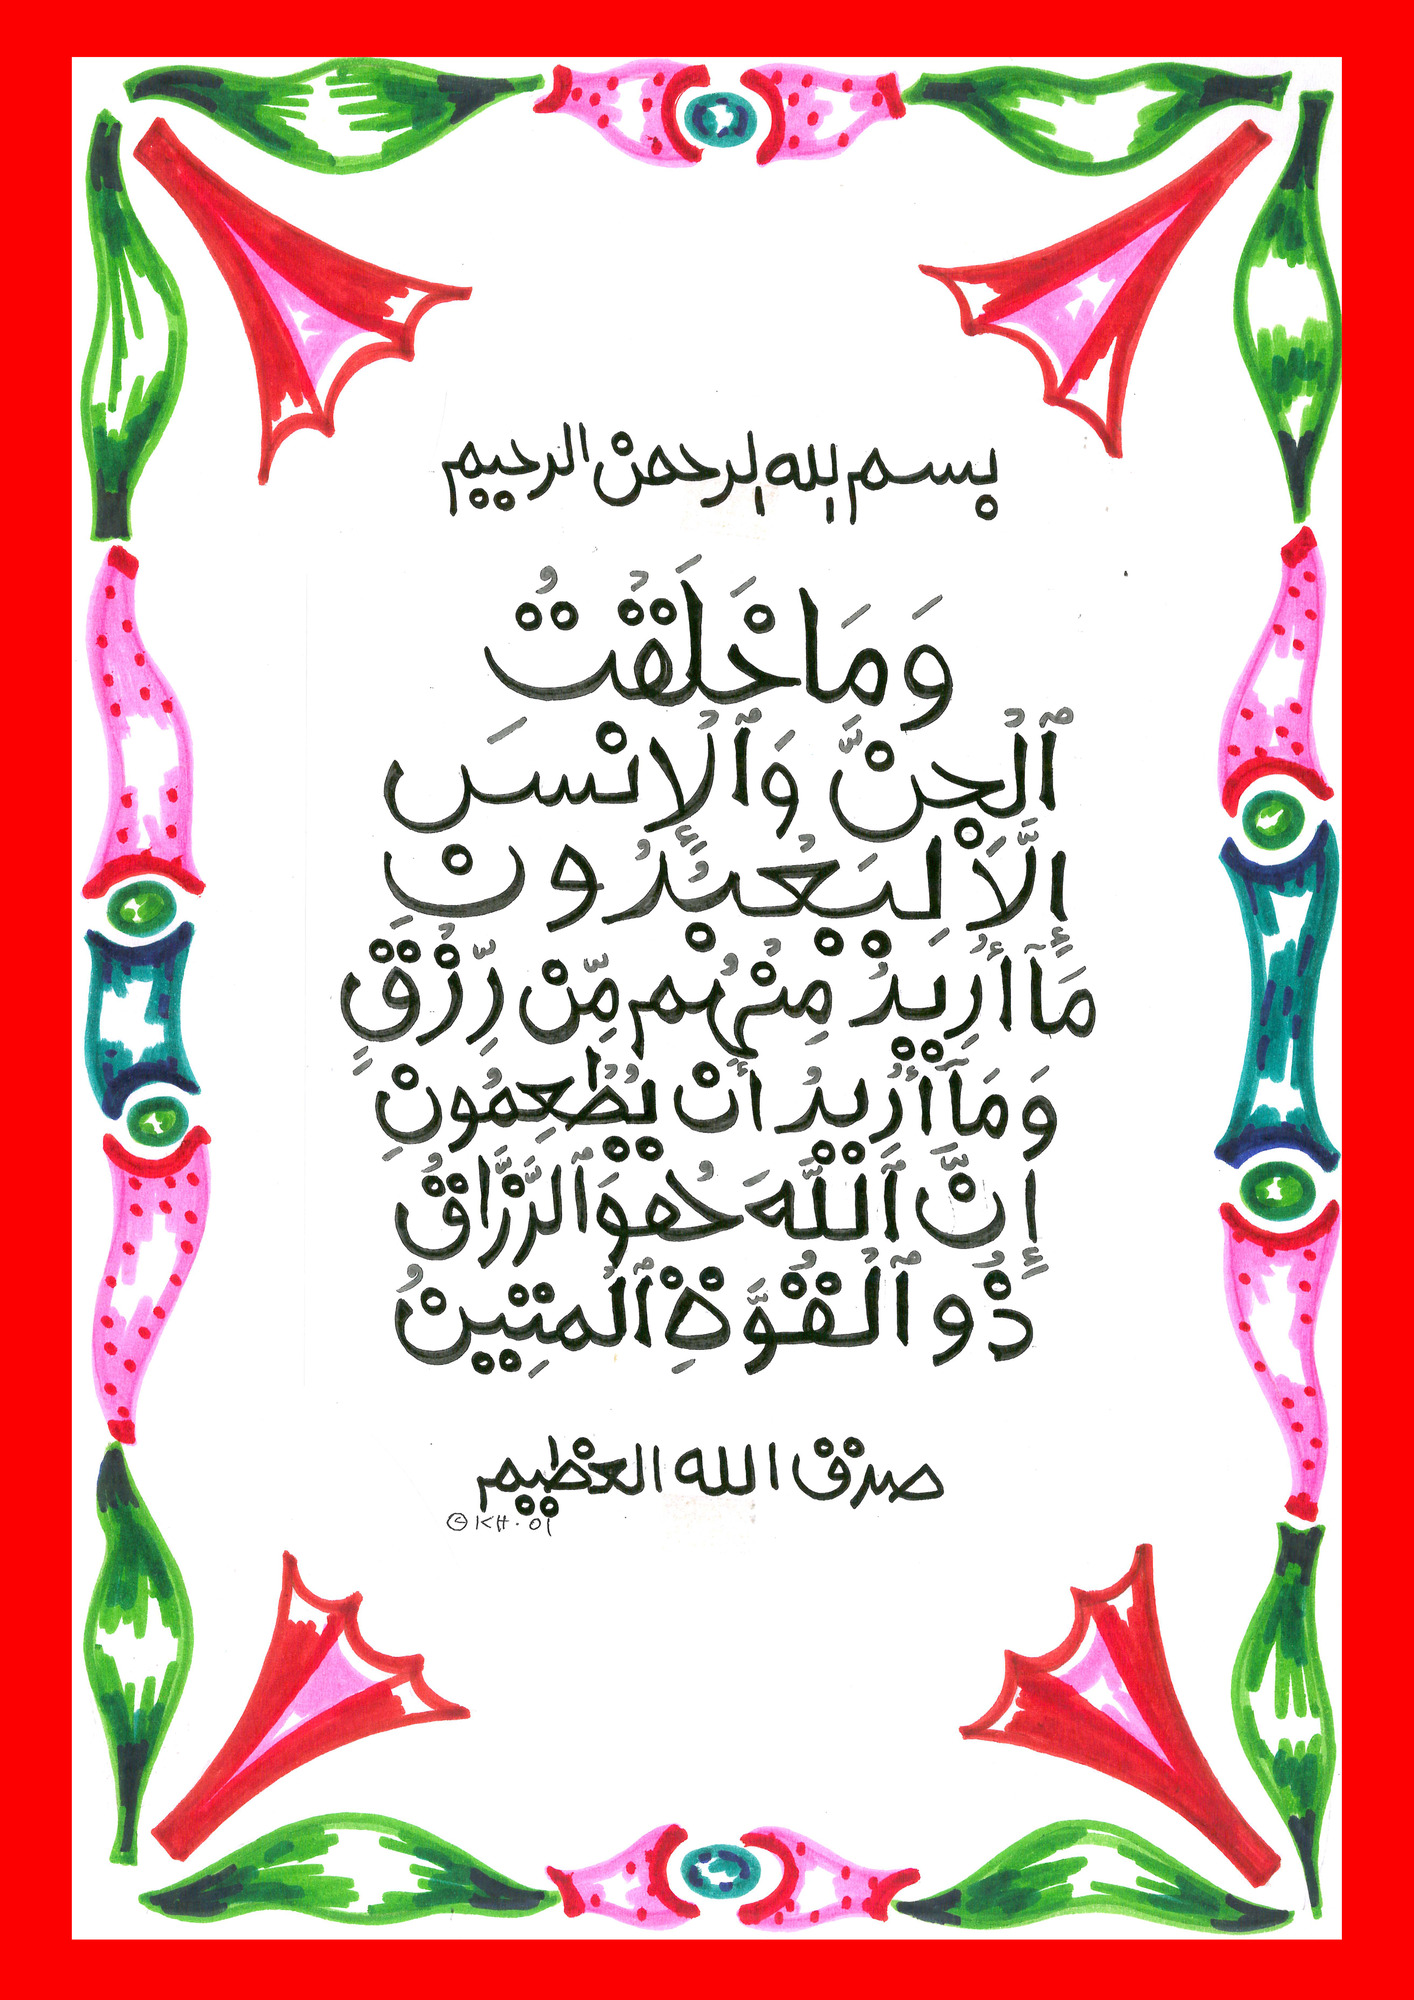 بسم الله الرحمن الرحيم
وَمَا خَلَقْتُ
ٱلْجِنَّ وَٱلْإِنسَ
إِلَّا لِيَعْبُدُونِ
مَآ أُرِيدُ مِنْهُم مِّن رِّزْقٍ
وَمَآ أُرِيدُ أَن يُطْعِمُونِ
إِنَّ ٱللَّهَ هُوَ ٱلرَّزَّاقُ
ذُو ٱلْقُوَّةِ ٱلْمَتِينُ
صدق الله العظيم
© KH. 01